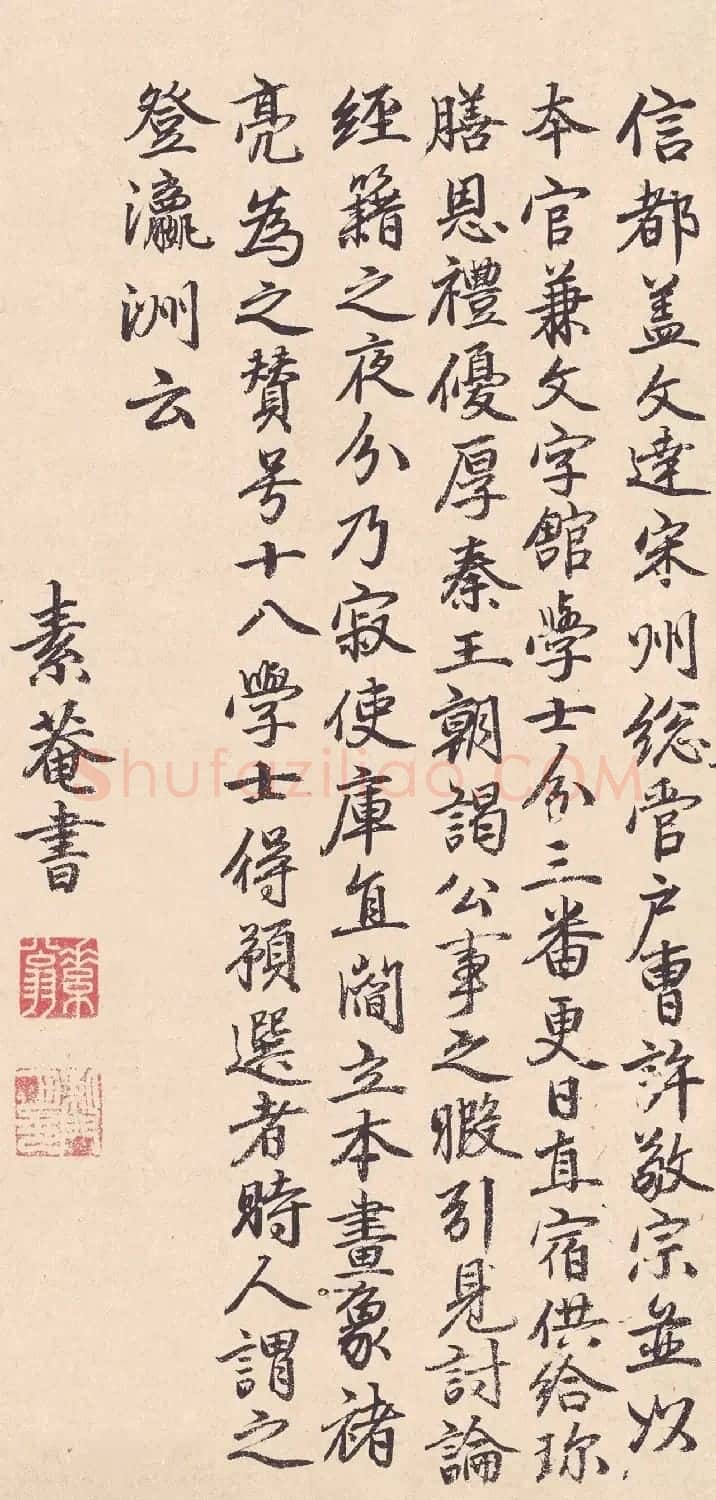 信都盖文達宋州総管户曹許敬宗並以
本官兼文字館學士分三番更日直宿供給珎
膳恩禮優厚秦王朝謁公事之暇引見討論
經籍之夜分乃寂使庫直閻立本畫象褚
亮為之賛号十八學士得預選者時人謂之
登瀛洲云
素菴書
Shufaziliao.COM